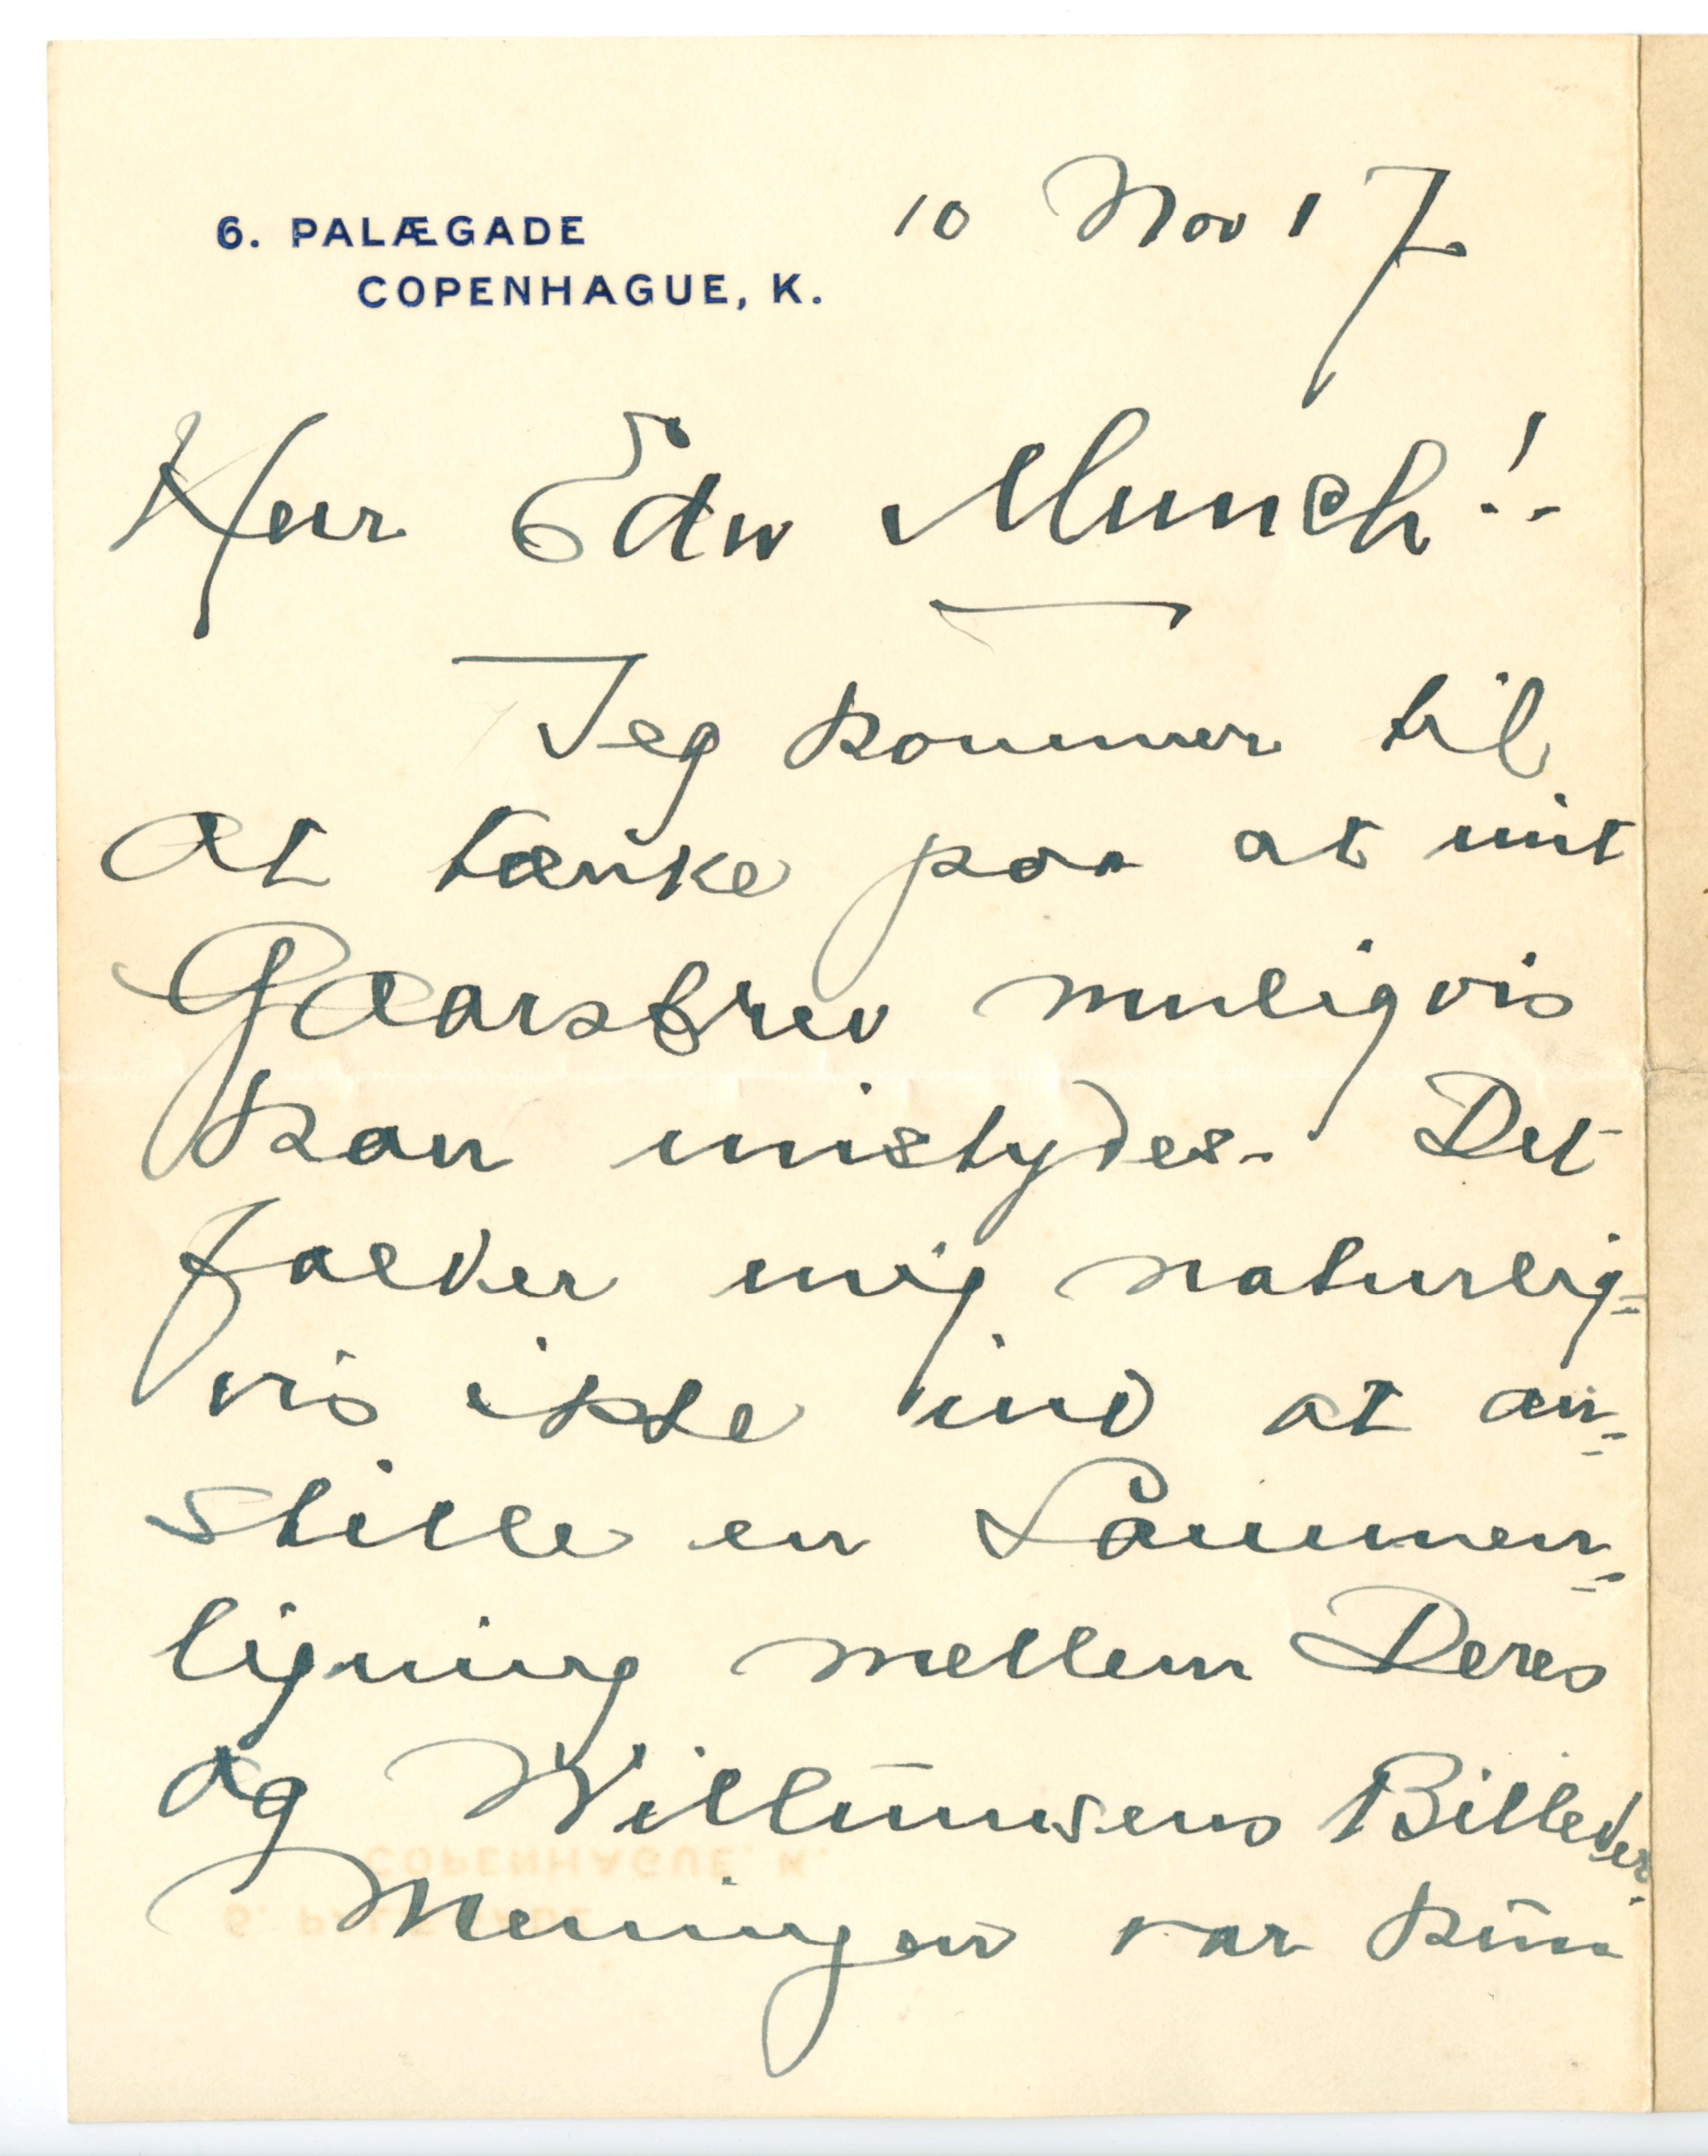 6. PALÆGADE
COPENHAGUE, K.
10 Nov 17
Herr Edv Munch!
Jeg kommer til
at tænke paa at mit
Gaarsbrev muligvis
kan mistydes. Det
falder mig naturlig=
vis ikke ind at an=
stille en Sammen=
ligning mellem Deres
og Willumsens Billeder.
Meningen var kun